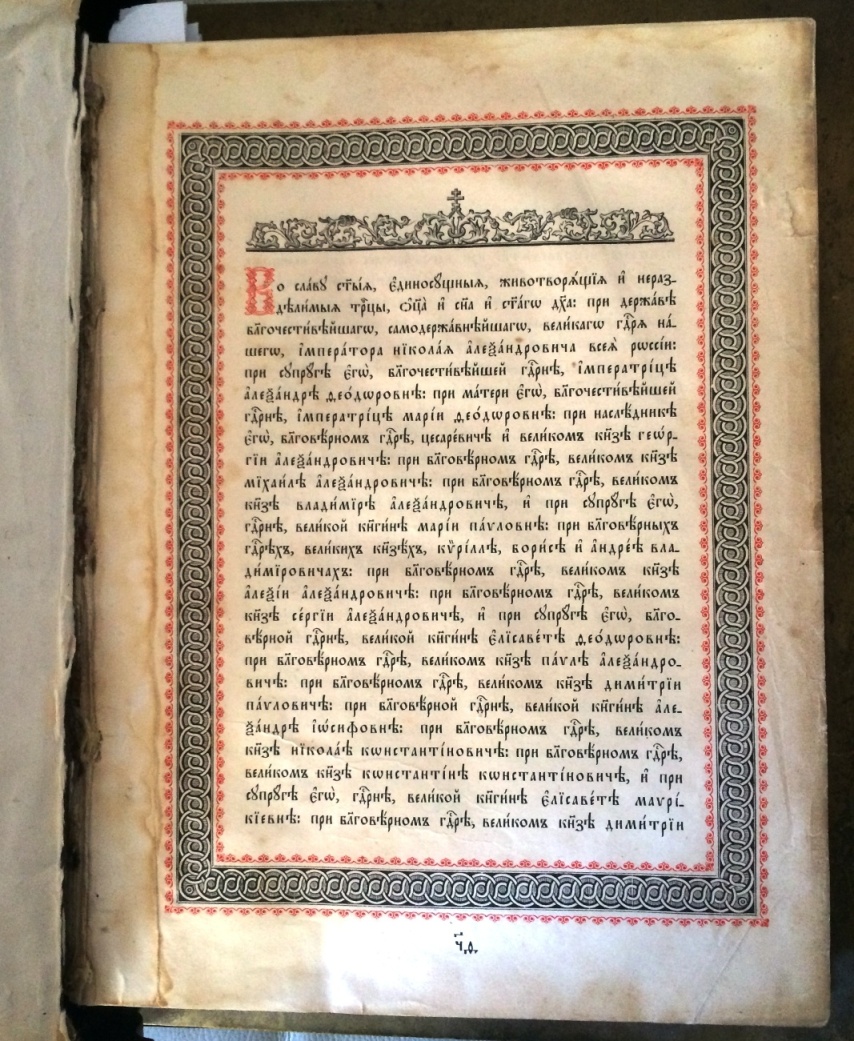 Во сла́вꙋ ст҃ы́ѧ, є҆диносꙋ́щныѧ, животворѧ́щїѧ и҆ нераз-
дѣ́лимыѧ трⷪ҇цы, ѻ҆ц҃а̀ и҆ сн҃а и҆ ст҃а́гѡ дх҃а: при держа́вѣ
бл҃гочести́вѣйшагѡ, самодержа́внѣйшагѡ, вели́кагѡ гдⷭ҇рѧ на́-
шегѡ, і҆мпера́тора нїкола́ѧ а҆леѯа́ндровича всеѧ̀ рѡссі́и:
при сꙋпрꙋ́гѣ є҆гѡ̀, бл҃гочести́вѣйшей гдⷭ҇рнѣ, і҆мператрі́цѣ
а҆леѯа́ндрѣ ѳео́дѡровнѣ: при ма́тери є҆гѡ̀, бл҃гочести́вѣйшей
гдⷭ҇рнѣ, і҆мператрі́цѣ марі́и ѳео́дѡровнѣ: при наслѣ́дникѣ
є҆гѡ̀, бл҃говѣ́рномъ гдⷭ҇рѣ, цесаре́вичѣ и҆ вели́комъ кн҃зѣ геѡ́р-
гїи а҆леѯа́ндровичѣ: при бл҃говѣ́рномъ гдⷭ҇рѣ, вели́комъ кн҃зѣ
мїхаи́лѣ а҆леѯа́ндровичѣ: при бл҃говѣ́рномъ гдⷭ҇рѣ, вели́комъ
кн҃зѣ влади́мїрѣ а҆леѯа́ндровичѣ, и҆ при сꙋпрꙋ́гѣ є҆гѡ̀,
гдⷭ҇рнѣ, вели́кой кн҃ги́нѣ марі́и па́ѵловнѣ: при бл҃говѣ́рныхъ
гдⷭ҇рѣхъ, вели́кихъ кн҃зѣ́хъ, кѷрі́ллѣ, бори́сѣ и҆ а҆ндре́ѣ вла-
ди́мїровичахъ: при бл҃говѣ́рномъ гдⷭ҇рѣ, вели́комъ кн҃зѣ
а҆леѯі́и а҆леѯа́ндровичѣ: при бл҃говѣ́рномъ гдⷭ҇рѣ, вели́комъ
кн҃зѣ се́ргїи а҆леѯа́ндровичѣ, и҆ при сꙋпрꙋ́гѣ є҆гѡ̀, бл҃го-
вѣ́рной гдⷭ҇рнѣ, вели́кой кн҃ги́нѣ є҆лїсаве́тѣ ѳео́дѡровнѣ:
при бл҃говѣ́рномъ гдⷭ҇рѣ, вели́комъ кн҃зѣ па́ѵлѣ а҆леѯа́ндро-
вичѣ: при бл҃говѣ́рномъ гдⷭ҇рѣ, вели́комъ кн҃зѣ дими́трїи
па́ѵловичѣ: при бл҃говѣ́рной гдⷭ҇рнѣ, вели́кой кн҃ги́нѣ а҆ле-
ѯа́ндрѣ і҆ѡ́сифовнѣ: при бл҃говѣ́рномъ гдⷭ҇рѣ, вели́комъ
кн҃зѣ нїкола́ѣ кѡнстанті́новичѣ: при бл҃говѣ́рномъ гдⷭ҇рѣ,
вели́комъ кн҃зѣ кѡнстанті́нѣ кѡнстанті́новичѣ, и҆ при
сꙋпрꙋ́гѣ є҆гѡ̀, гдⷭ҇рнѣ, вели́кой кн҃ги́нѣ є҆лїсаве́тѣ маѵрі́-
кїевнѣ: при бл҃говѣ́рномъ гдⷭ҇рѣ, вели́комъ кн҃зѣ дими́трїи